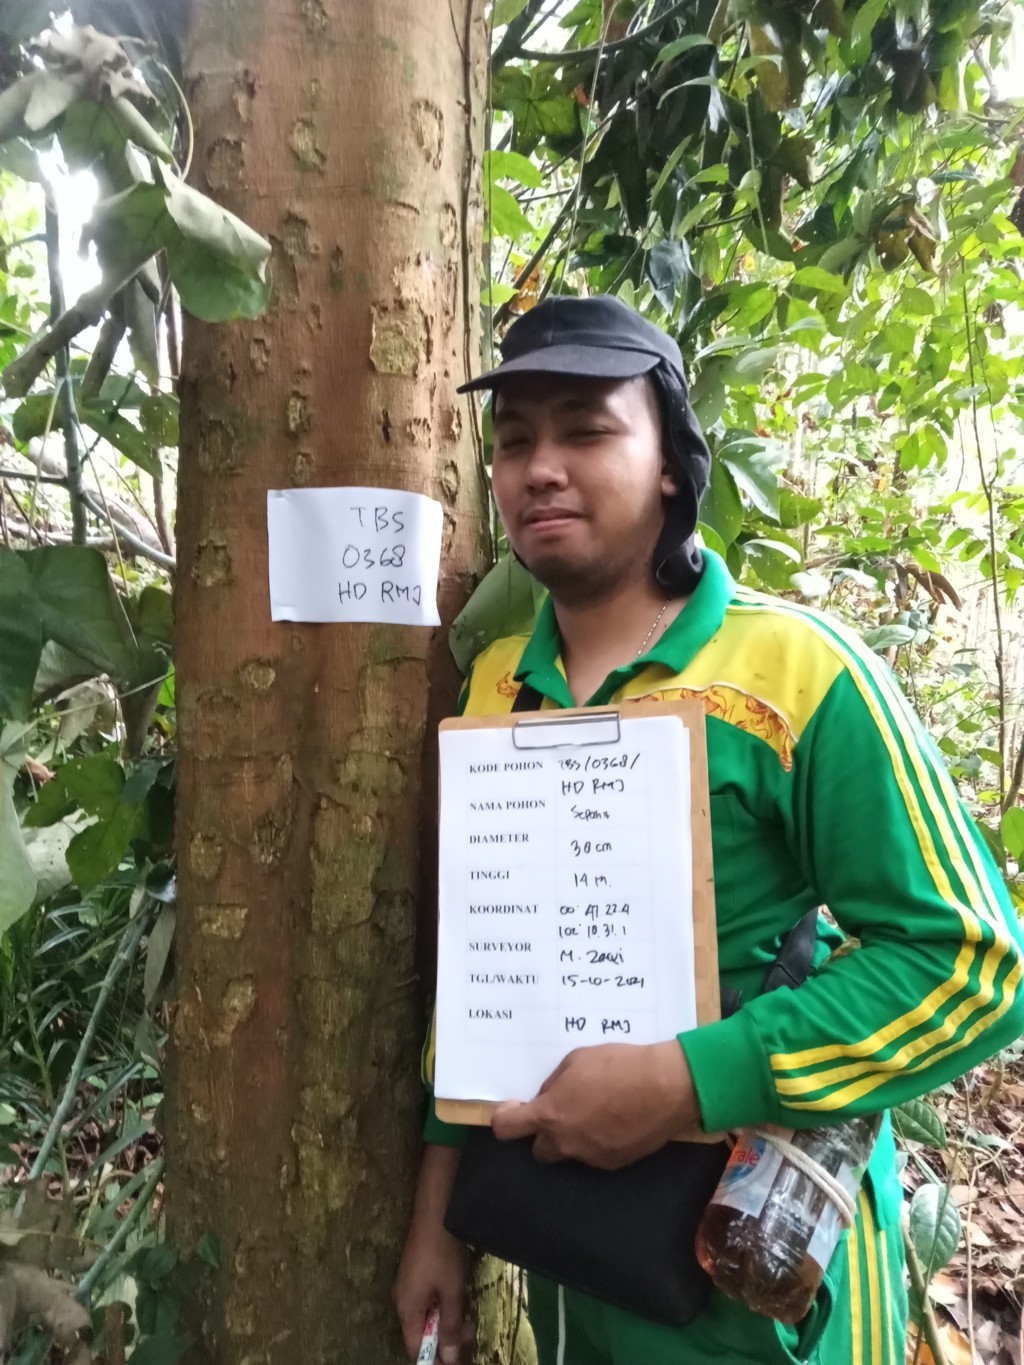 TBS
0368
HD RMJ
KODE POHON TBS/0368/
HD RMJ
NAMA POHON
DIAMETER 38 cm
TINGGI 14 m.
KOORDINAT 00° 47 22.4
102° 10. 31. 1
SURVEYOR M. Zaki
TGL/WAKTU 15-10-2021
LOKASI HD RMJ
rale